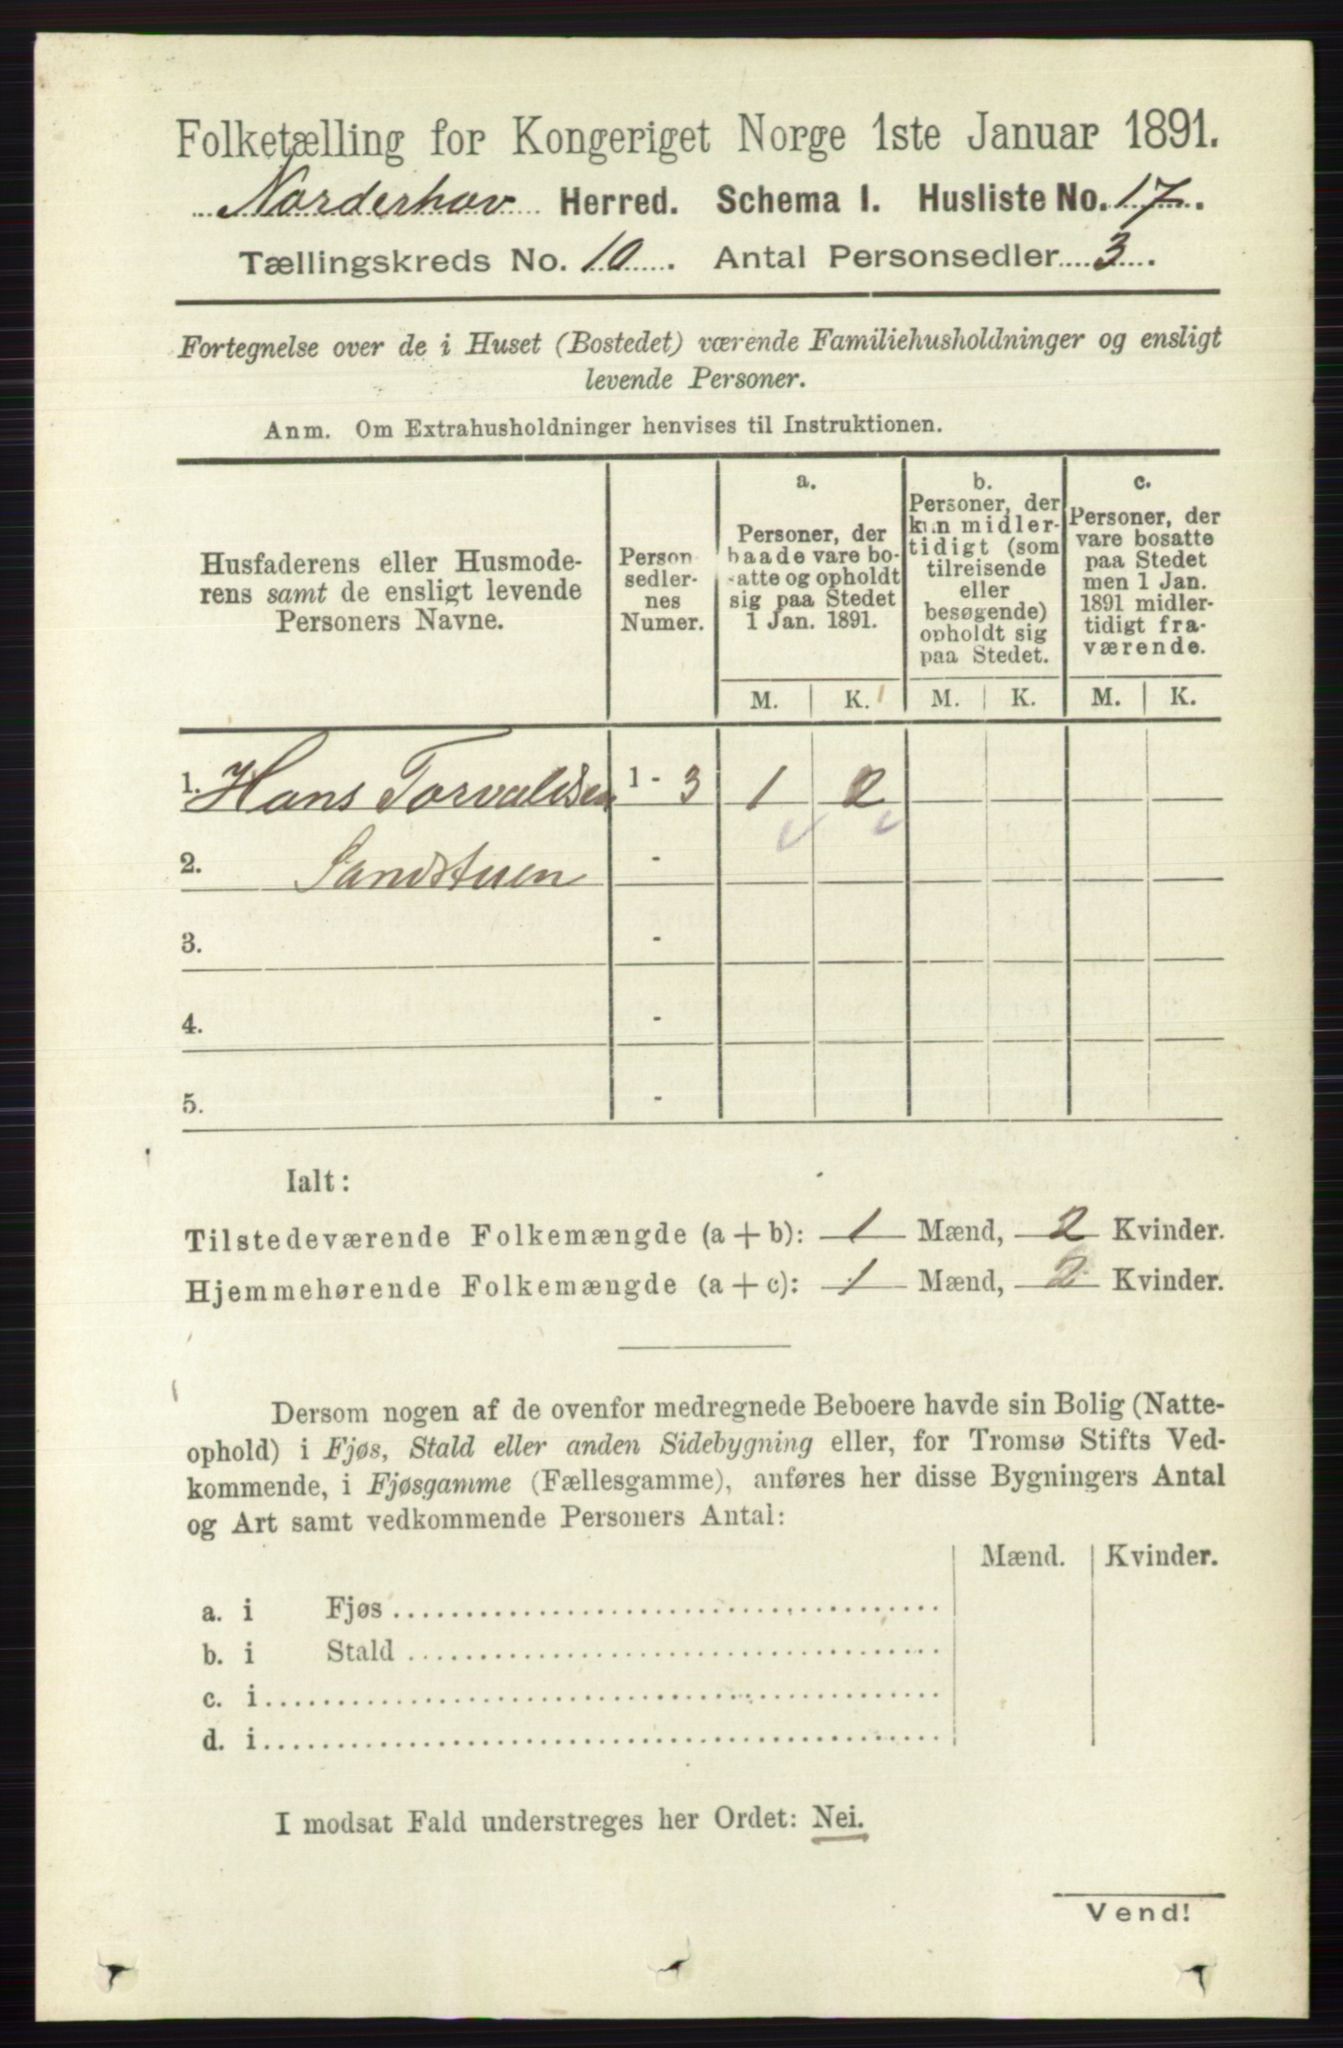 Folketælling for Kongeriget Norge 1ste Januar 1891.
Norderhov Herred. Schema I. Husliste No. 17.
Tællingskreds No. 10. Antal Personsedler 3.
Fortegnelse over de i Huset (Bostedet) værende Familiehusholdninger og ensligt
levende Personer.
Anm. Om Extrahusholdninger henvises til Instruktionen.
Husfaderens eller Husmode-
rens samt de ensligt levende
Personers Navne.
Person
sedler-
nes
Numer.
a.
Personer, der
baade vare bo-
satte og opholdt
sig paa Stedet
1 Jan. 1891.
b.
Personer, der
kun midler-
tidigt (som
tilreisende
eller
besøgende)
opholdt sig
paa Stedet.
c.
Personer, der
vare bosatte
paa Stedet
men 1 Jan.
1891 midler-
tidigt fra-
værende.
M. K. M. K. M. K.
1. Hans Torvaldsen 1 - 3 1 2
2. Sandstuen -
3. -
4. -
5. -
Ialt:
Tilstedeværende Folkemængde (a + b): 1 Mænd, 2 Kvinder.
Hjemmehørende Folkemængde (a + c): 1 Mænd, 2 Kvinder.
Dersom nogen af de ovenfor medregnede Beboere havde sin Bolig (Natte-
ophold) i Fjøs, Stald eller anden Sidebygning eller, for Tromsø Stifts Ved-
kommende, i Fjøsgamme (Fællesgamme), anføres her disse Bygningers Antal
og Art samt vedkommende Personers Antal:
Mænd. Kvinder.
a. i Fjøs
b. i Stald
c. i
d. i
I modsat Fald understreges her Ordet: Nei.
Vend!